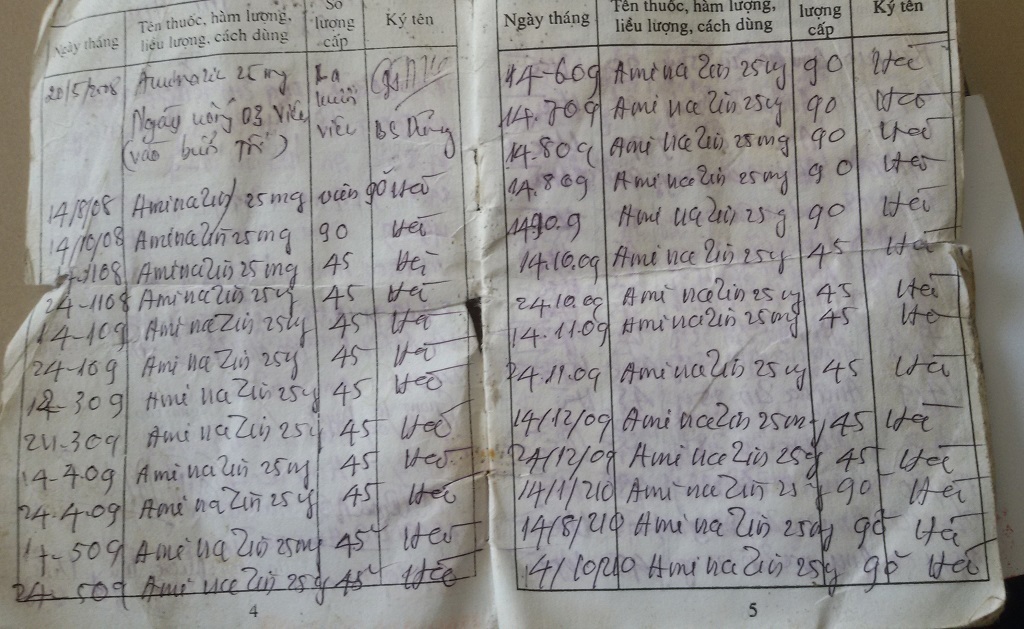 Ngày tháng Tên thuốc, hàm lượng, liều lượng, cách dùng Số lượng cấp Ký tên
20/5/2008 Aminazin 25mg
Ngày uống 03 viên viên BS Dũng
(vào buổi tối)
14/8/08 Aminazin 25mg viên 90 Hà
14/10/08 Aminazin 25mg 90 Hà
Aminazin 25mg 45 Hà
24-1108 Aminazin 25mg 45 Hà
14-109 Aminazin 25mg 45 Hà
24-109 Aminazin 25mg 45 Hà
309 Aminazin 25mg 45 Hà
24.309 Aminazin 25mg 45 Hà
14-4.09 Aminazin 25mg 45 Hà
24.4.09 Aminazin 25mg 45 Hà
14-509 Aminazin 25mg 45 Hà
24-509 Aminazin 25mg 45 Hà
4
Ngày tháng Tên thuốc, hàm lượng, liều lượng, cách dùng lượng cấp Ký tên
14-609 Aminazin 25mg 90 Hà
14.709 Aminazin 25mg 90 Hà
14.809 Aminazin 25mg 90 Hà
14.809 Aminazin 25mg 90 Hà
1490.9 Aminazin 25g 90 Hà
14.10.09 Aminazin 25mg 45 Hà
24.10.09 Aminazin 25mg 45 Hà
14.11.09 Aminazin 25mg 45 Hà
24.11.09 Aminazin 25mg 45 Hà
14/12/09 Aminazin 25mg 45 Hà
24/12/09 Aminazin 25mg 45 Hà
14/1/210 Aminazin 25mg 90 Hà
14/8/210 Aminazin 25mg 90 Hà
14/10/210 Aminazin 25mg 90 Hà
5